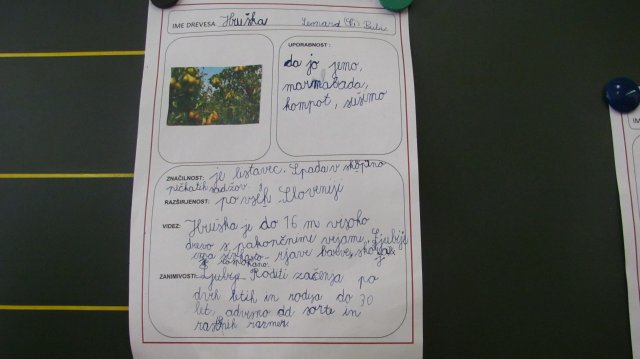 IME DREVESA Hruška Lenard
UPORABNOST:
da jo jemo,
marmelada,
kompot, sušimo
ZNAČILNOST: je listavec. Spada v skupino
pečkatih sadežov
RAZŠIRJENOST: po vseh Sloveniji
VIDEZ: Hruška je do 16 m visoko
drevo s pokončnimi vejami. Ljubje
ima rjave barve,
ZANIMIVOSTI: Roditi začenja po
dveh letih in rodija do 30
let, odvisno od sorte in
rasnih razmer.
IME